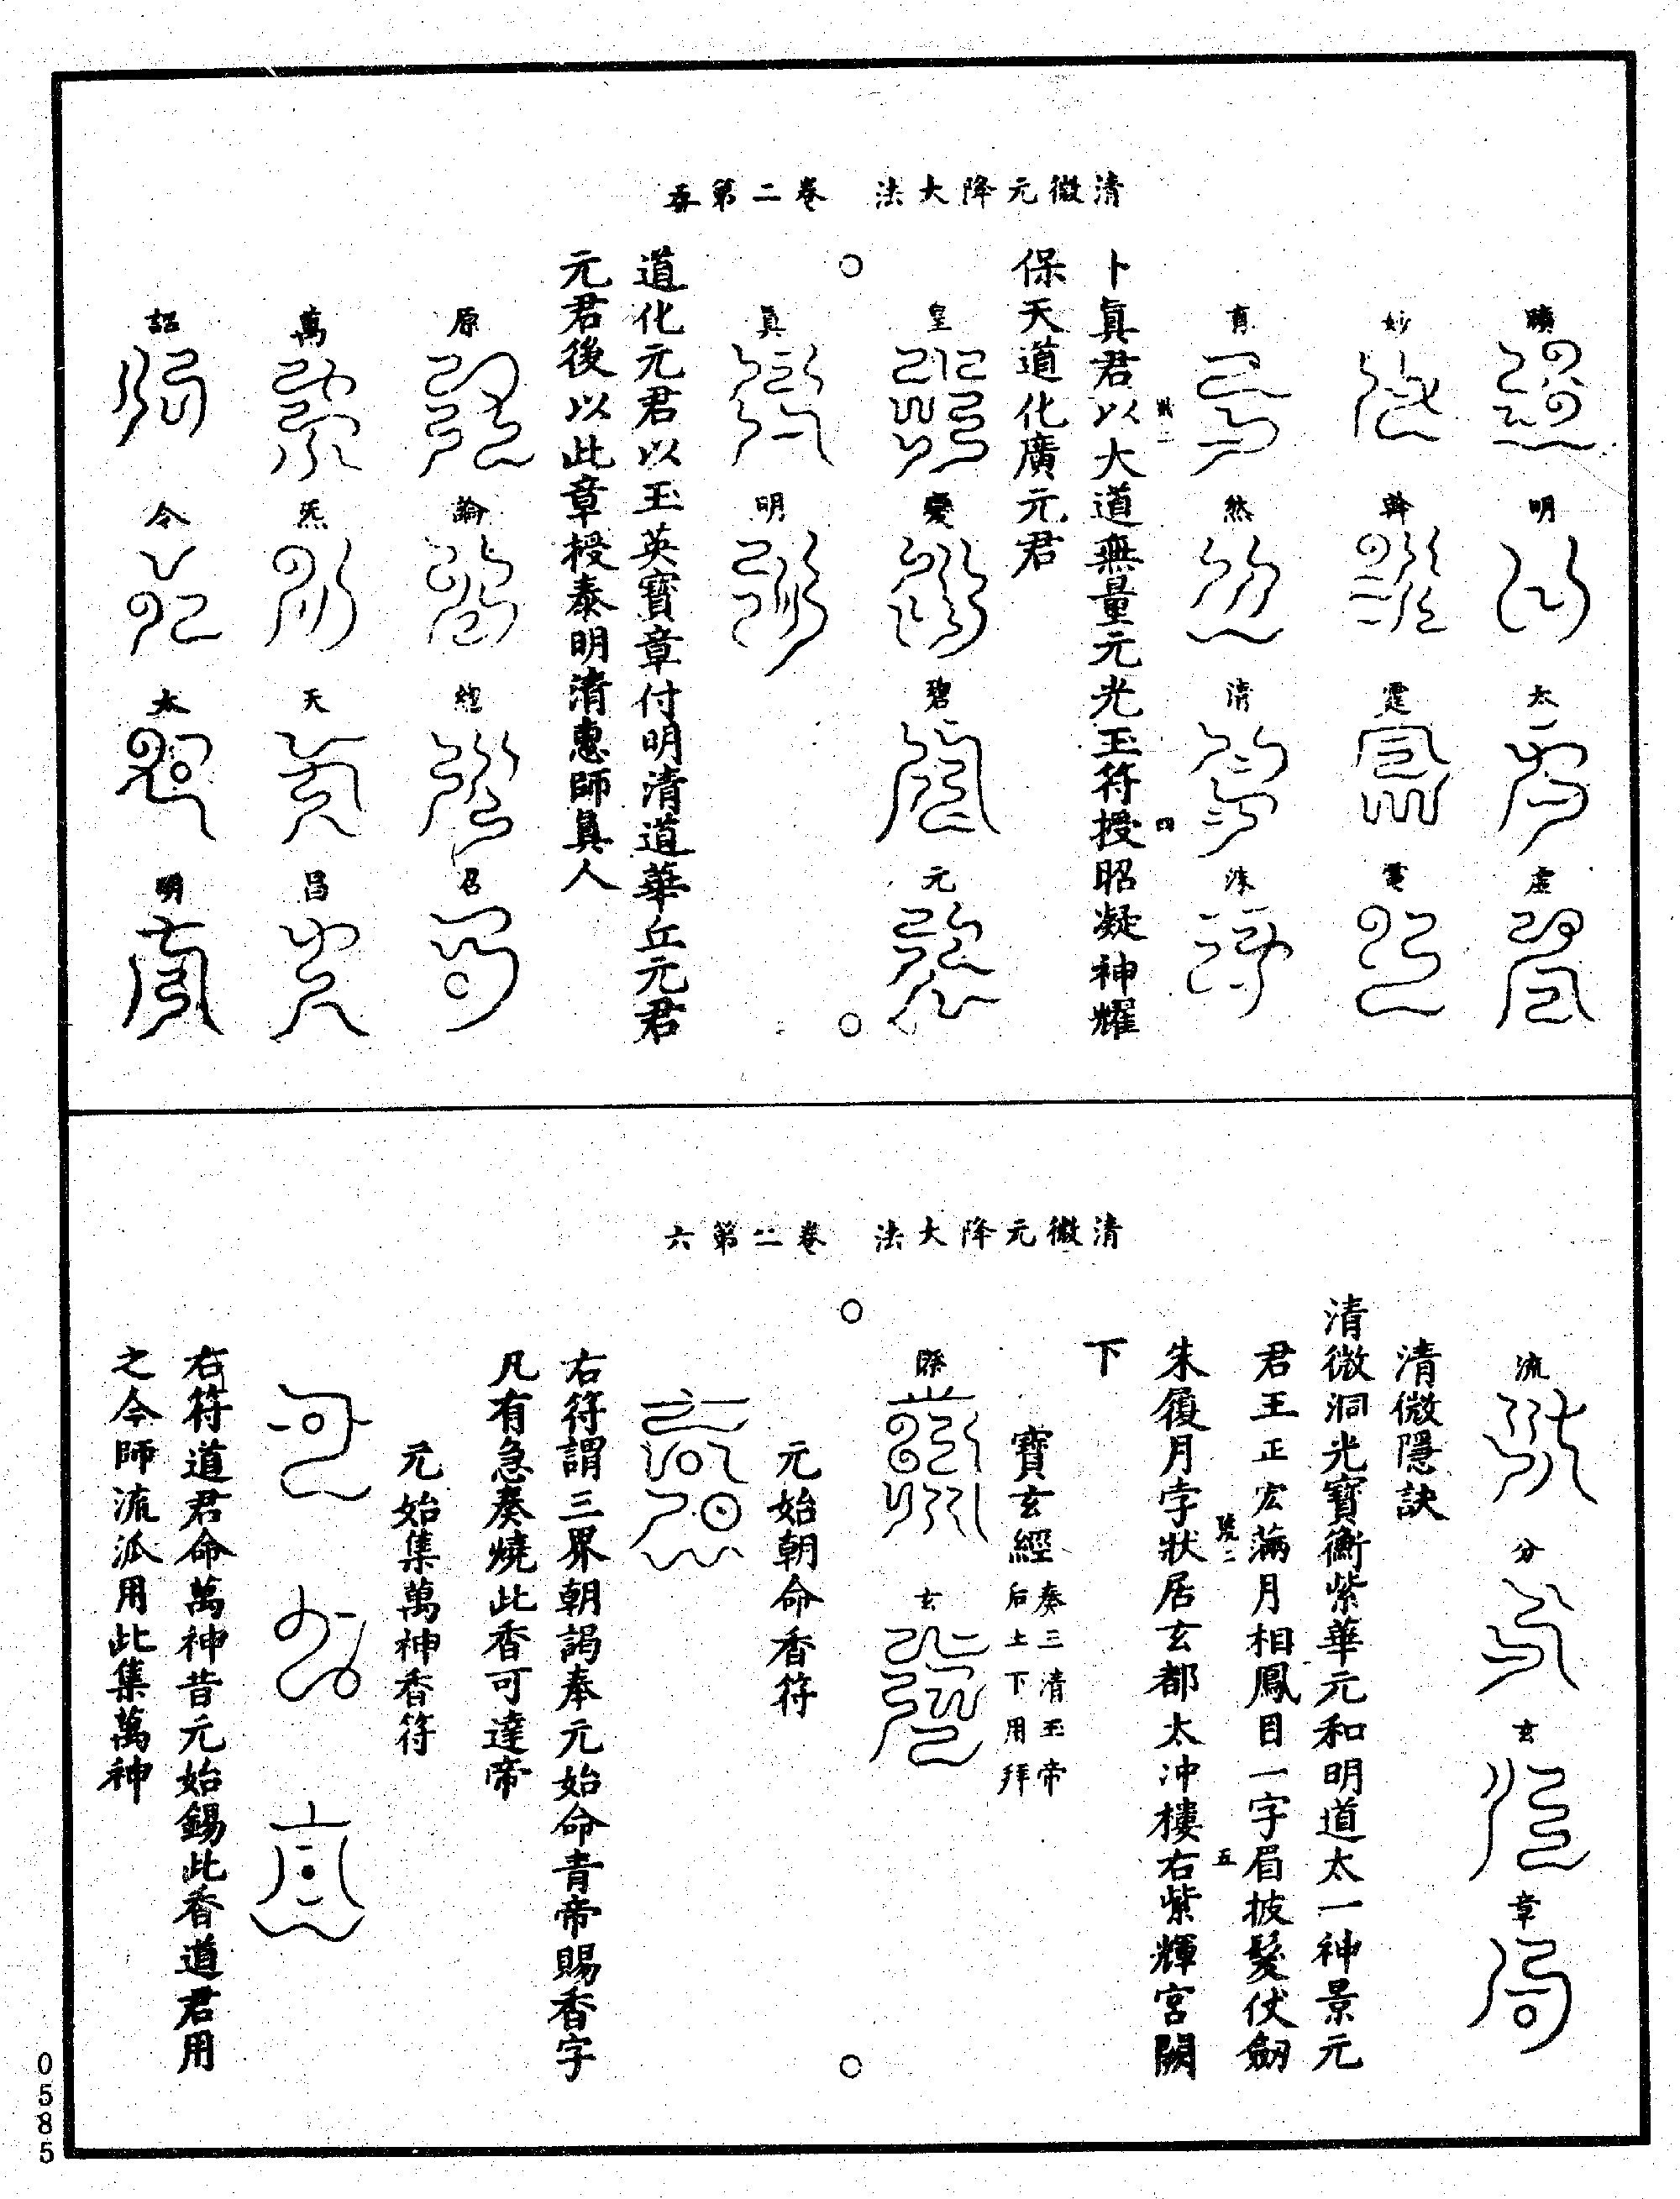 清微元降大法 卷二第五
明太虛
妙幹霆電
育然清洙
卜真君以大道無量元光玉符授昭凝神耀
保天道化廣元君
皇變碧元
真明
道化元君以玉英寶章付明清道華丘元君
元君後以此章授泰明清惠師真人
原論總召
萬炁天昌
詔令太明
清微元降大法 卷二第六
流分玄章
清微隱訣
清微洞光寶衡紫華元和明道太一神景元
君王正宏滿月相鳳目一字眉披髮伏劒
朱履月孛狀居玄都太冲樓右紫輝宮闕
下
寶玄經 奏三清玉帝后土下用拜
玄
元始朝命香符
右符謂三界朝謁奉元始命青帝賜香字
凡有急奏燒此香可達帝
元始集萬神香符
右符道君命萬神昔元始錫此香道君用
之今師流派用此集萬神
0585